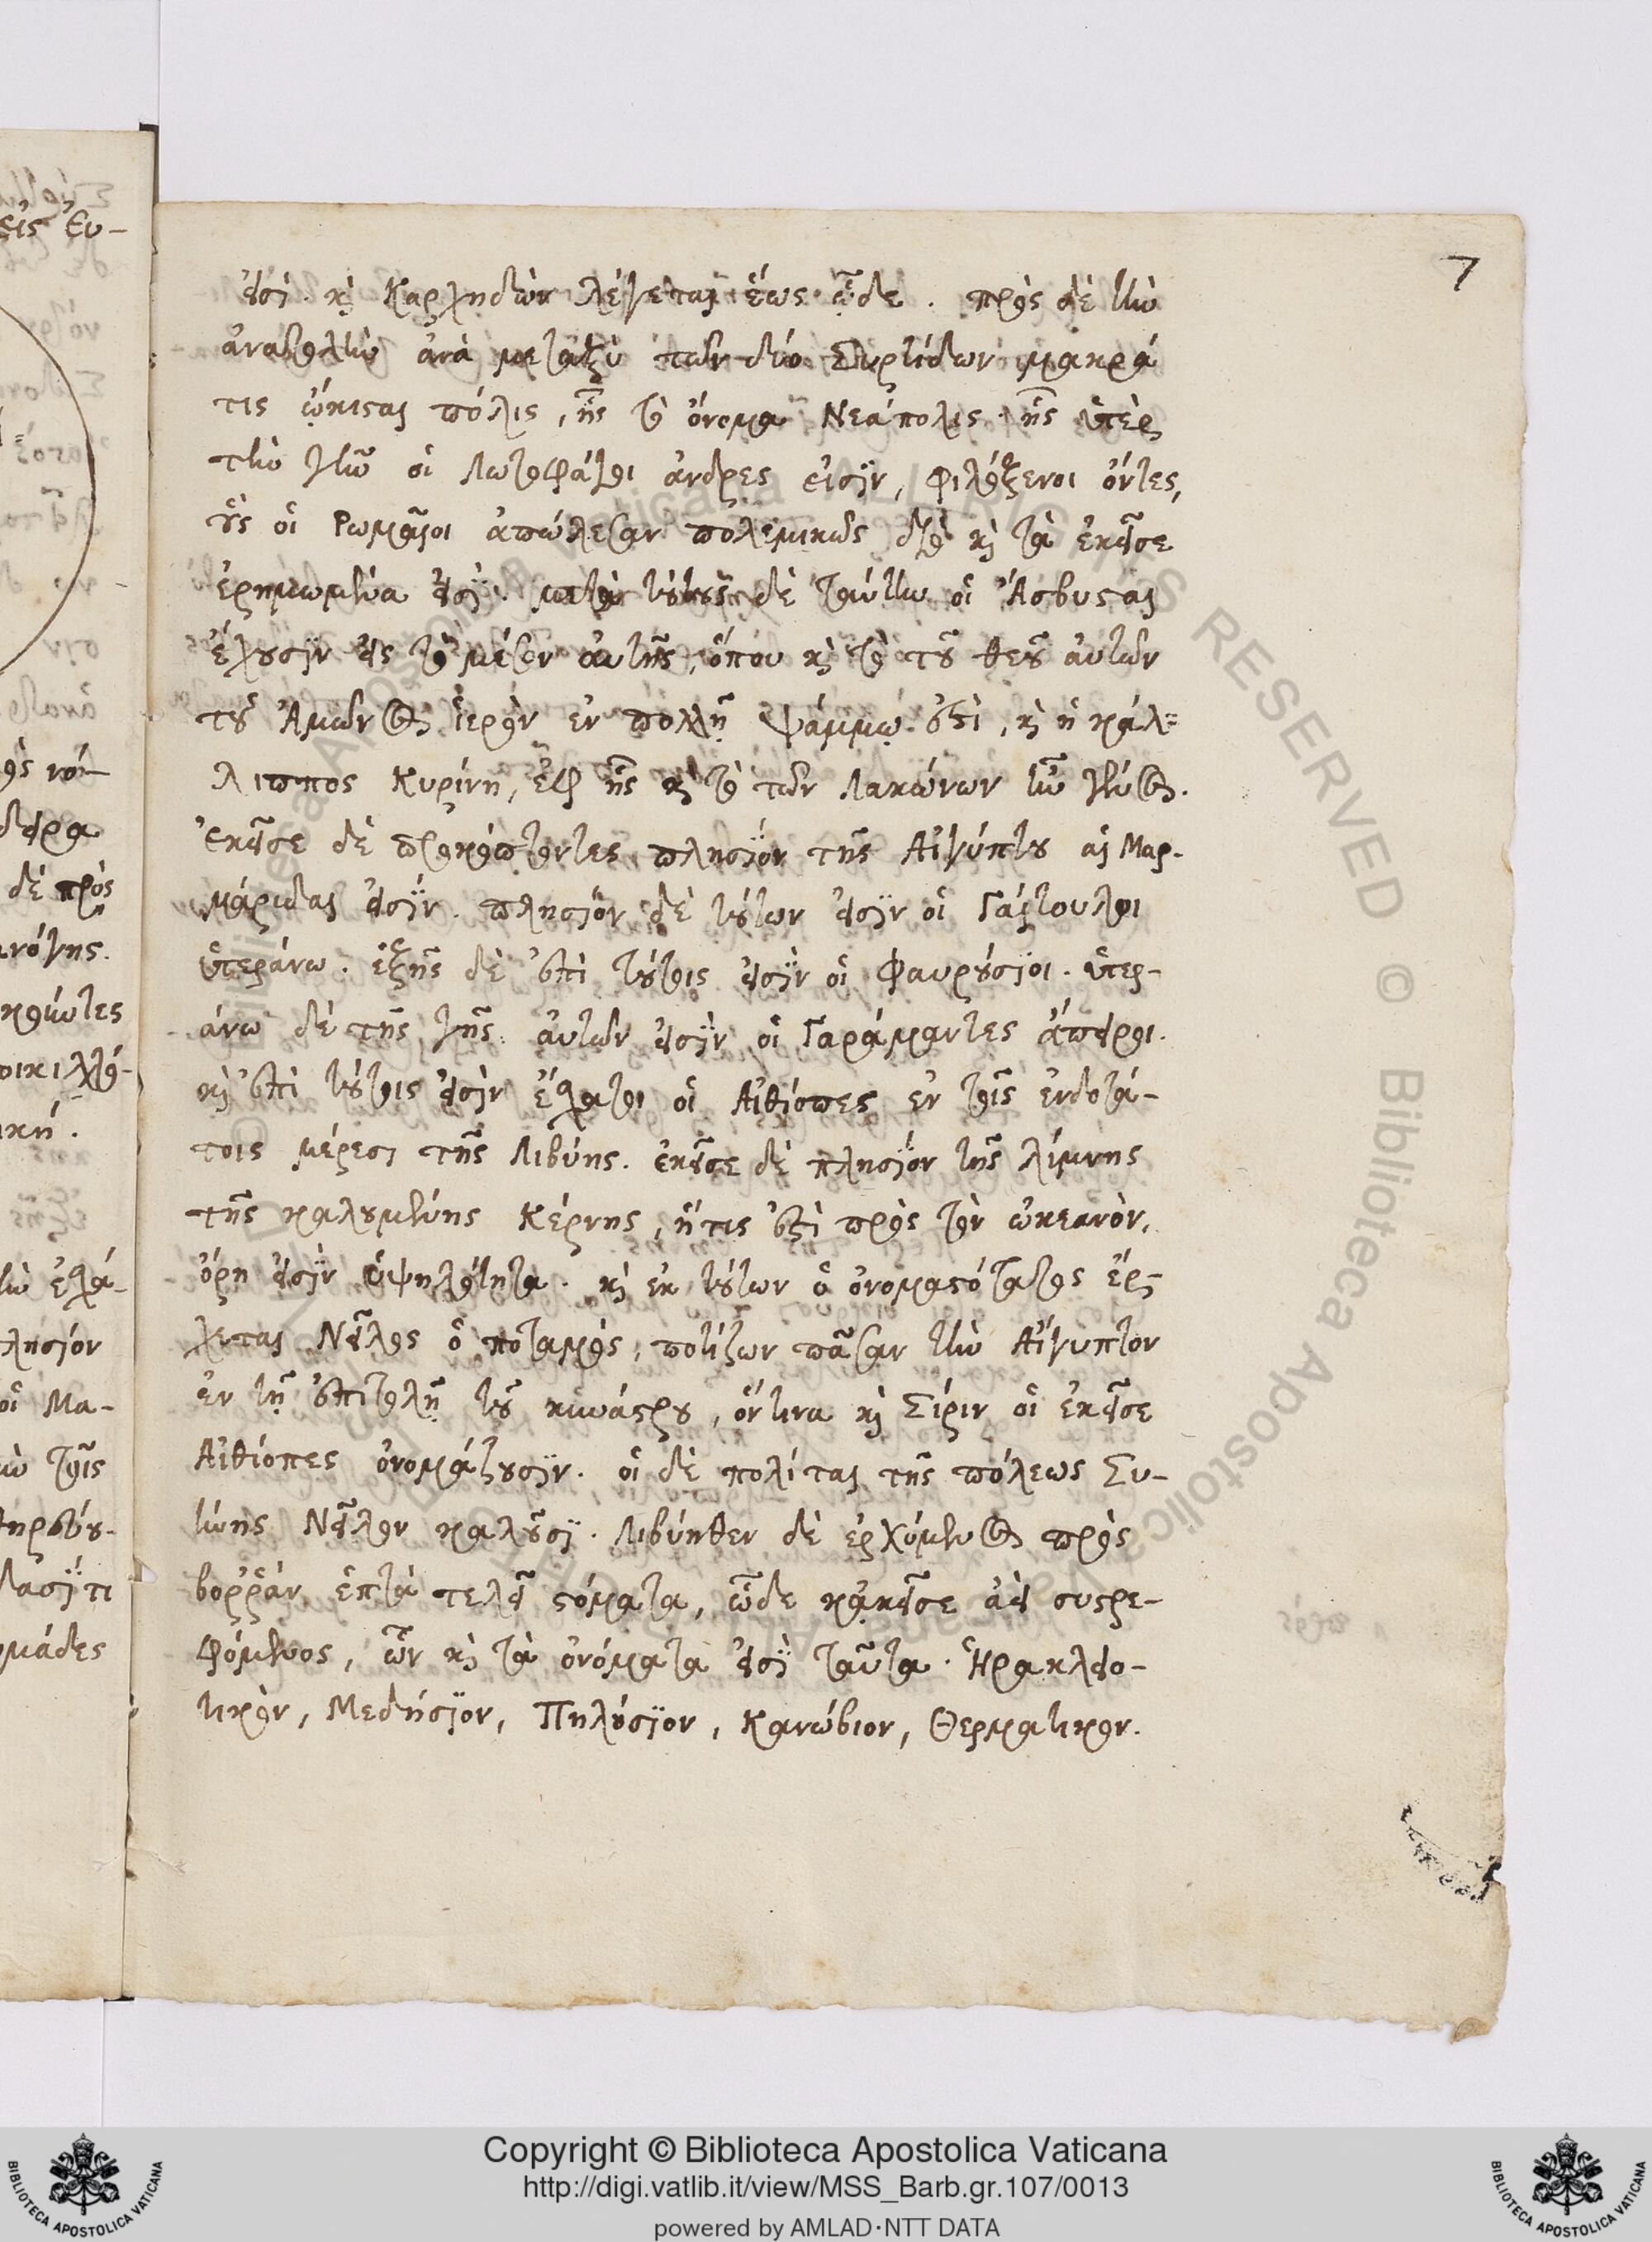 εἰσὶ. καὶ Καρχηδὼν λέγεται ἕως ὧδε. πρὸς δὲ τὴν
ἀνατολὴν ἀνὰ μεταξὺ τῶν δύο Συρτίδων μακρά
τις ᾤκισται πόλις, ἧς τὸ ὄνομα Νεάπολις. ἧς ὑπὲρ
τὴν γῆν οἱ Λωτοφάγοι ἄνδρες εἰσὶν, φιλόξενοι ὄντες,
οὓς οἱ Ρωμαῖοι ἀπώλεσαν πολεμικῶς διὸ καὶ τὰ ἐκεῖσε
ἐρημωμένα εἰσί. μετὰ δὲ ταύτην οἱ Ἄσβυσται
ἔχουσιν εἰς τὸ μέσον αὐτῆς, ὅπου καὶ τὸ τοῦ θεοῦ αὐτῶν
τοῦ Ἄμωνος ἱερὸν ἐν πολλῇ ψάμμῳ ἐστὶ, καὶ ἡ κάλ-
λιππος Κυρίνη, ἐξ ἧς καὶ τὸ τῶν Λακώνων ἦν γένος.
ἐκεῖσε δὲ προκόπτοντες πλησίον τῆς Αἰγύπτου αἱ Μαρ-
μάριδαι εἰσίν. πλησίον δὲ τούτων εἰσὶν οἱ Γαίτουλοι
ὑπεράνω. ἑξῆς δὲ ἐπὶ τούτοις εἰσὶν οἱ Φαυρούσιοι. ὑπερ-
άνω δὲ τῆς γῆς αὐτῶν εἰσὶν οἱ Γαράμαντες ἄπειροι.
καὶ ἐπὶ τούτοις εἰσὶν ἔσχατοι οἱ Αἰθίοπες ἐν τοῖς ἐνδοτά-
τοις μέρεσι τῆς Λιβύης. ἐκεῖσε δὲ πλησίον τῆς λίμνης
τῆς καλουμένης Κέρνης, ἥτις ἐστὶ πρὸς τὸν ὠκεανὸν,
ὄρη εἰσὶν ὑψηλότητα. καὶ ἐκ τούτων ὁ ὀνομαστότατος ἔρ-
χεται Νεῖλος ὁ ποταμὸς, ποτίζων πᾶσαν τὴν Αἴγυπτον
ἐν τῇ ἐπιτολῇ τοῦ κυνάστρου, ὅντινα καὶ Σίριν οἱ ἐκεῖσε
Αἰθίοπες ὀνομάζουσιν. οἱ δὲ πολίται τῆς πόλεως Συ-
ήνης Νεῖλον καλοῦσι. Λιβύηθεν δὲ ἐρχόμενος πρὸς
βοῤῥᾶν ἑπτὰ τελεῖ στόματα, ὧδε κἀκεῖσε ἀεὶ συστρε-
φόμενος, ὧν καὶ τὰ ὀνόματα εἰσὶ ταῦτα. Ἡρακλεο-
τικὸν, Μεδήσιον, Πηλούσιον, Κανώβιον, Θερματικον.
7
εἰς Ἐυ-
δὲ πρὸς
Copyright © Biblioteca Apostolica Vaticana
http://digi.vatlib.it/view/MSS_Barb.gr.107/0013
powered by AMLAD·NTT DATA